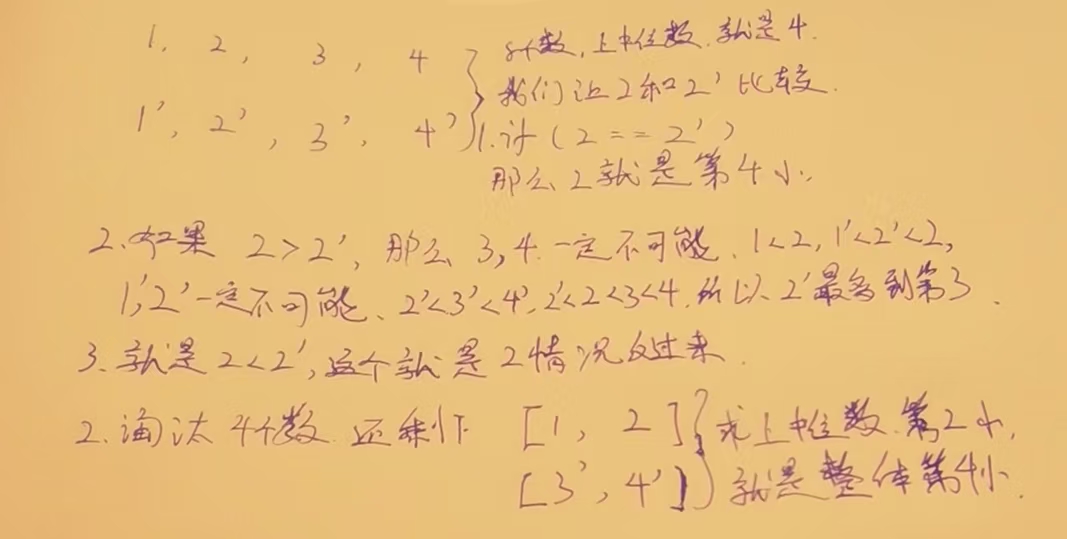 1, 2, 3, 4 } 8个数,上中位数,就是4.
我们让2和2'比较.
1', 2', 3', 4'
1.讨(2==2')
那么2就是第4小.
2.如果 2>2', 那么3,4.一定不可能、1<2,1'<2'<2,
1',2'一定不可能、2'<3'<4',2'<2<3<4.所以2'最多到第3.
3.就是2<2',这个就是2情况反过来.
2.淘汰4个数.还剩下 [1, 2] } 求上中位数.第2小,
[3', 4'] 就是整体第4小.